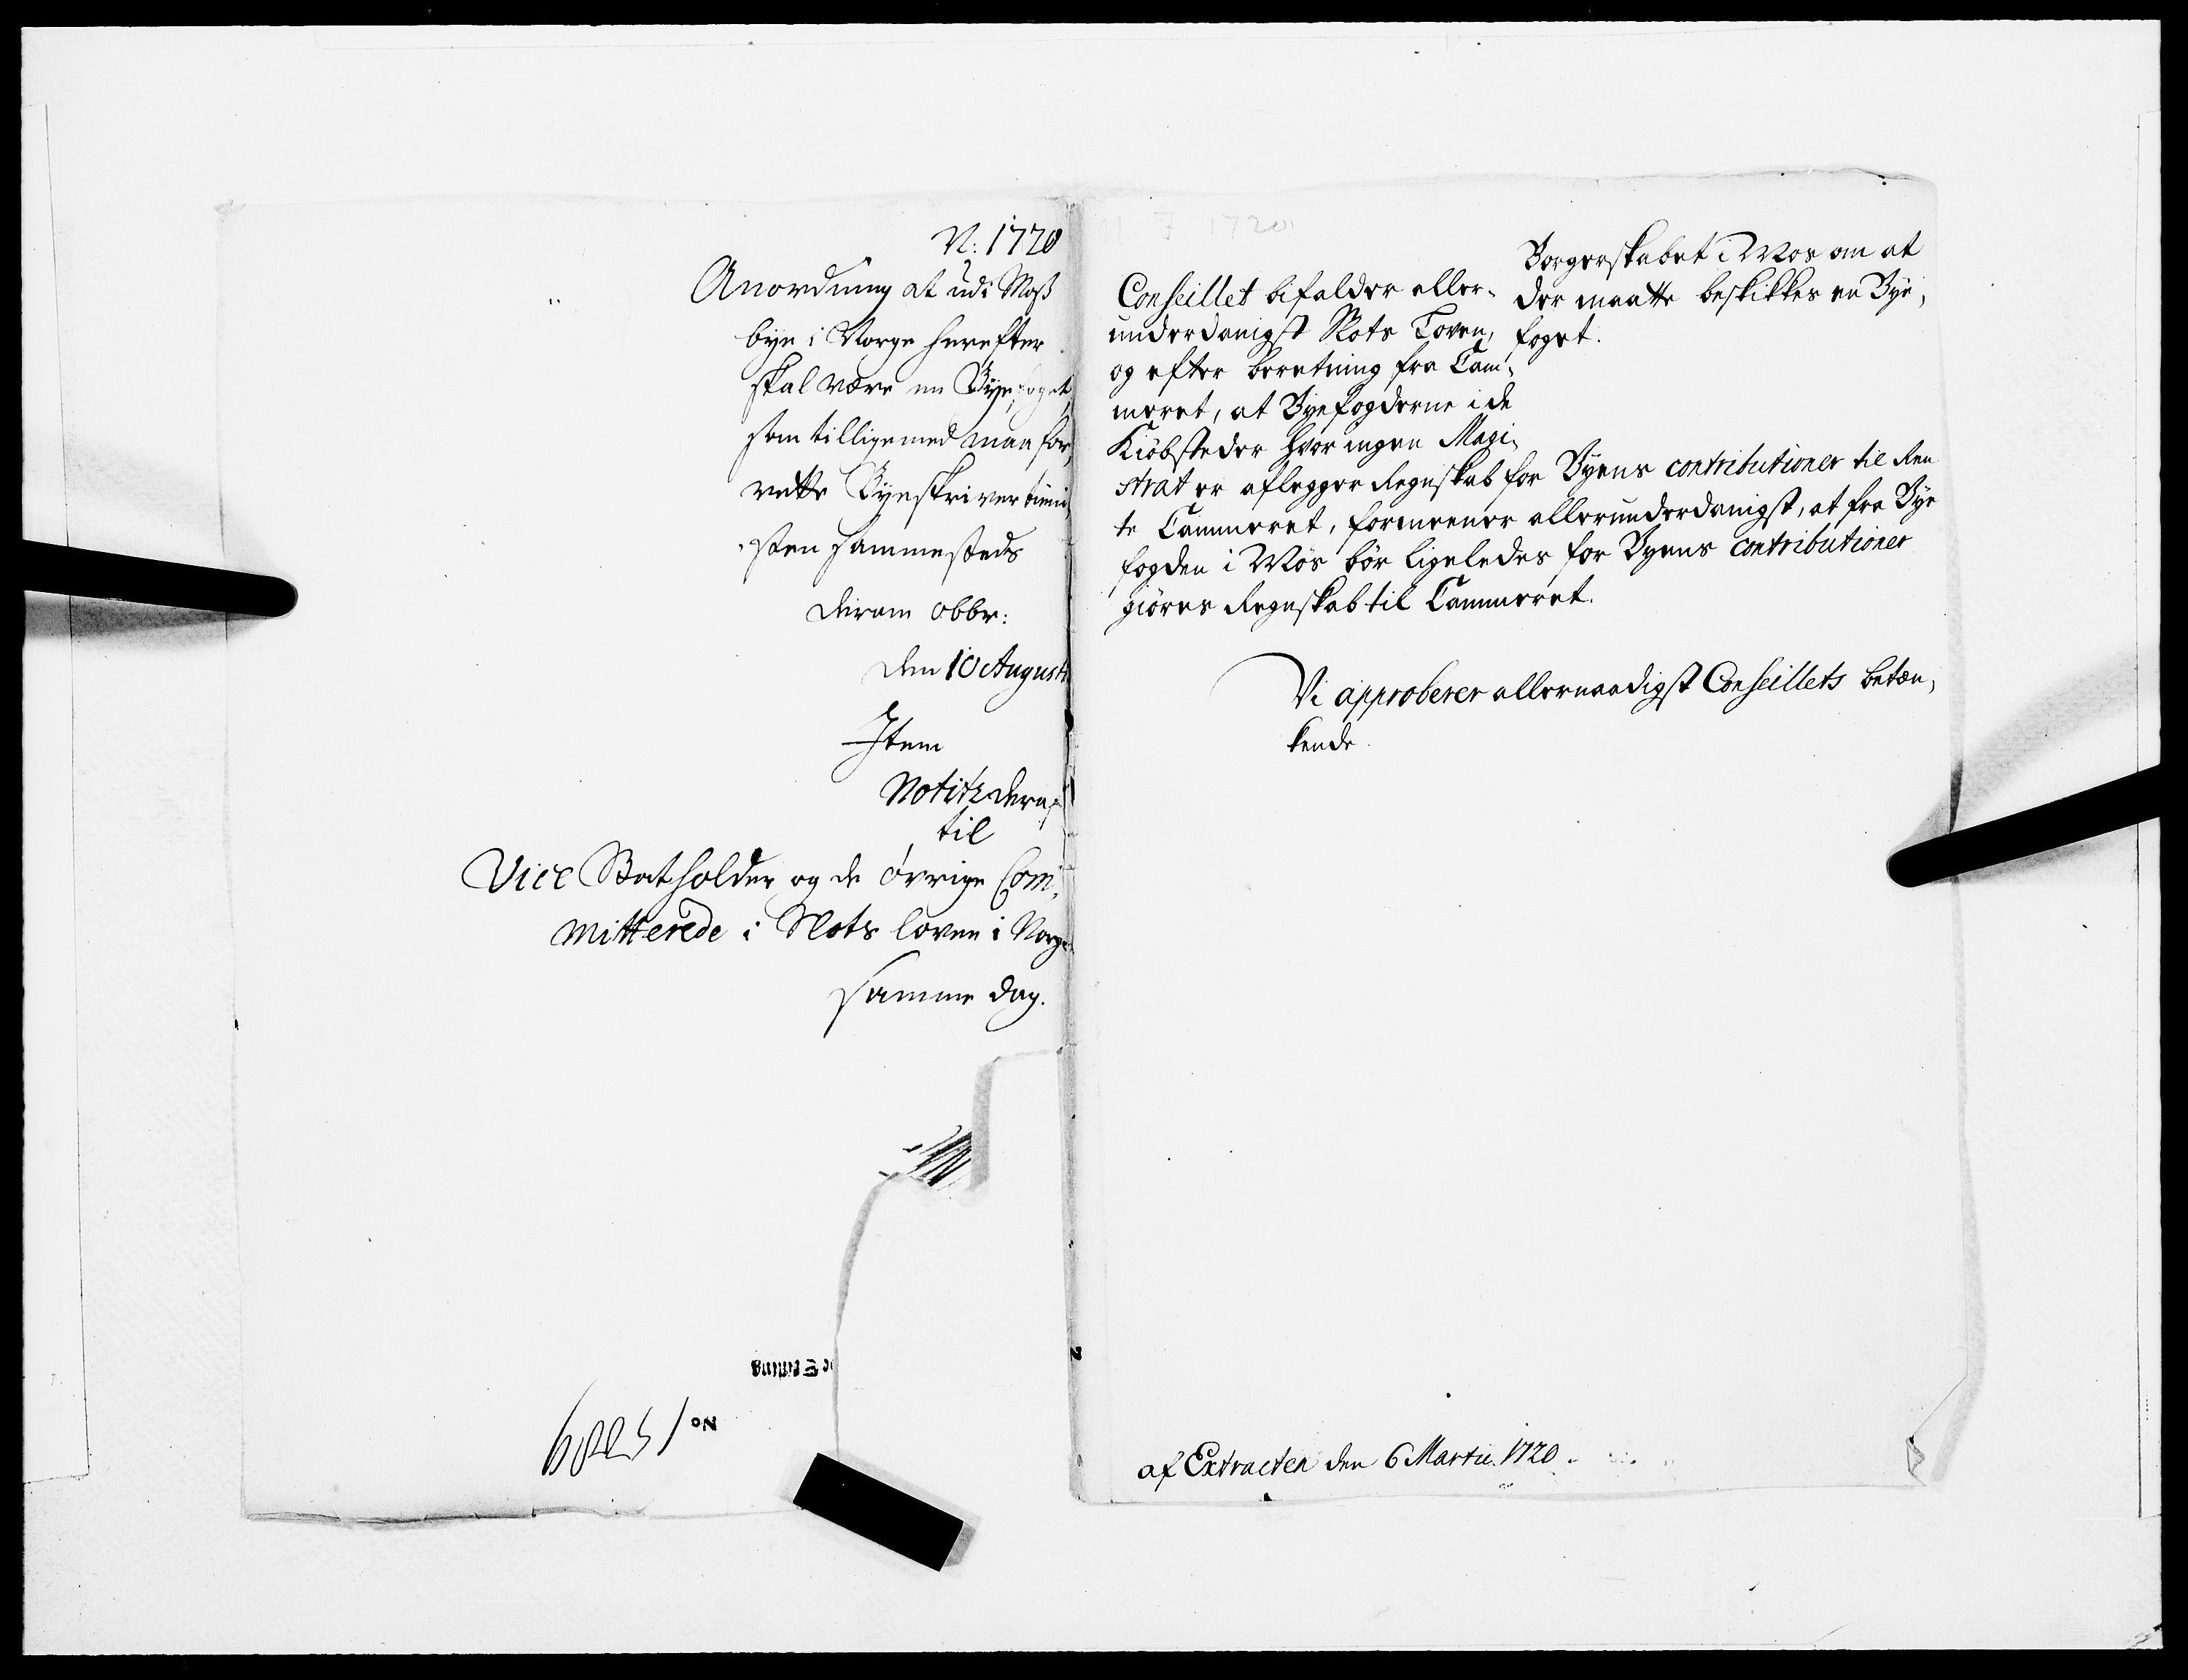 N: 1720
Anordning at udi Moss
bye i Norge herefter
skal være en Byefoget
som tillige med maa for,
rette Byeskriver tieni,
sten sammesteds
den 10 Augusti
Item
Notitz deraf
til
Vice Statholder og de øvrige Com,
mitterede i Slots loven i Norge
samme dag.
No
1720
Borgerskabet i Mos om at
der maatte beskikkes en Bye,
foget.
Conseillet bifalder aller,
underdanigst Slots Loven,
og efter beretning fra Cam,
meret, at Byefogderne i de
Kiøbsteder hvor ingen Magi,
strat er aflegger Regnskab for Byens contributioner til Ren
te Cammeret, formeener allerunderdanigst, at fra Bye
fogden i Mos bør ligeledes for Byens contributioner
giøres Regnskab til Cammeret.
Vi approberer allernaadigst Conseillets betæn,
kende.
af Extracten den 6 Martii 1720.